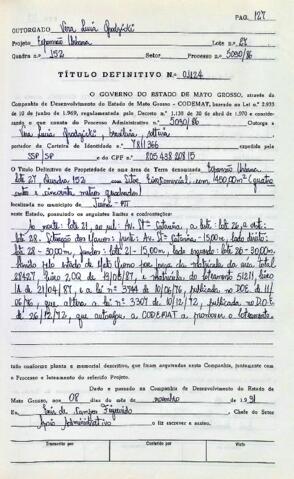 PAG. 127
OUTORGADO Vera Lucia
Projeto Expansão Urbana Lote n.º 27
Quadra n.º 152 Setor Processo n.º 5090/86
TÍTULO DEFINITIVO N.º 0424
O GOVERNO DO ESTADO DE MATO GROSSO, através da
Companhia de Desenvolvimento do Estado de Mato Grosso - CODEMAT, baseado na Lei n.º 2.933
de 10 de junho de 1.969, regulamentada pelo Decreto n.º 1.138 de 30 de abril de 1.970 e consideran-
do o que consta do Processo Administrativo n.º 5090/86 Outorga a
Vera Lucia , brasileira, solteira
portador da Carteira de Identidade n.º 781366 expedida pela
SSP SP e do CPF n.º 805438 20815
O Título Definitivo de Propriedade de uma área de Terra denominada Expansão Urbana
lote 27 Quadra 152 com 450,00m² (quatro
centos e cincoenta metros quadrados)
localizada no município de Juína - MT
neste Estado, possuindo os seguintes limites e confrontações:
Ao norte: lote 21, ao sul: Av. Sta Catarina, a leste: lote 26, a oeste:
lote 28. frente: Av. Sta Catarina - 15,00m, lado direito:
lote 28 - 30,00m, fundos: lote 21 - 15,00m, lado esquerdo: lote 26 - 30,00m.
pelo Estado de Mato Grosso matrícula da área total
e matrícula do loteamento
de 21/04/87, e a lei nº 3744 de 10/06/76, publicada no DOE de 11/
06/76, que altera a lei nº 3307 de 10/12/72, publicada no D.O.E
de 26/12/72, que autoriza a CODEMAT a promover o loteamento.
tudo conforme planta e memorial descritivo, que ficam arquivados nesta Companhia, juntamente com
o Processo e loteamento do referido Projeto.
Dado e passado na Companhia de Desenvolvimento do Estado de
Mato Grosso, aos 08 dias do mês de novembro de 1.991
Eu, Luis de Campos Figueiredo, Chefe do Setor
Apoio Administrativo o fiz escrever e assino.
Transcrito por Conferido por Visto